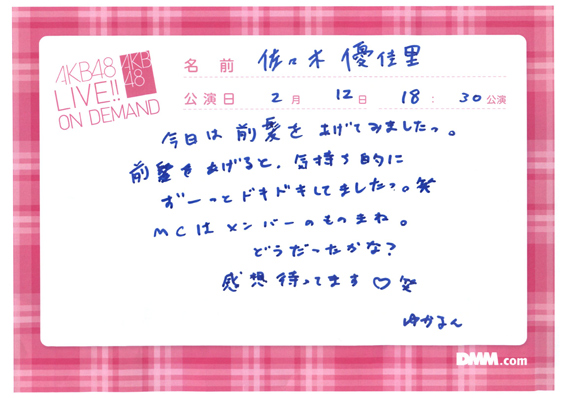 AKB48
LIVE!!
ON DEMAND
AKB
48
名前 佐々木 優佳里
公演日 2月 12日 18:30公演
今日は前髪をあげてみましたっ。
前髪をあげると、気持ち的に
ずーっとドキドキしてましたっ。笑
MCはメンバーのものまね。
どうだったかな?
感想待ってます♡笑
ゆかるん
DMM.com